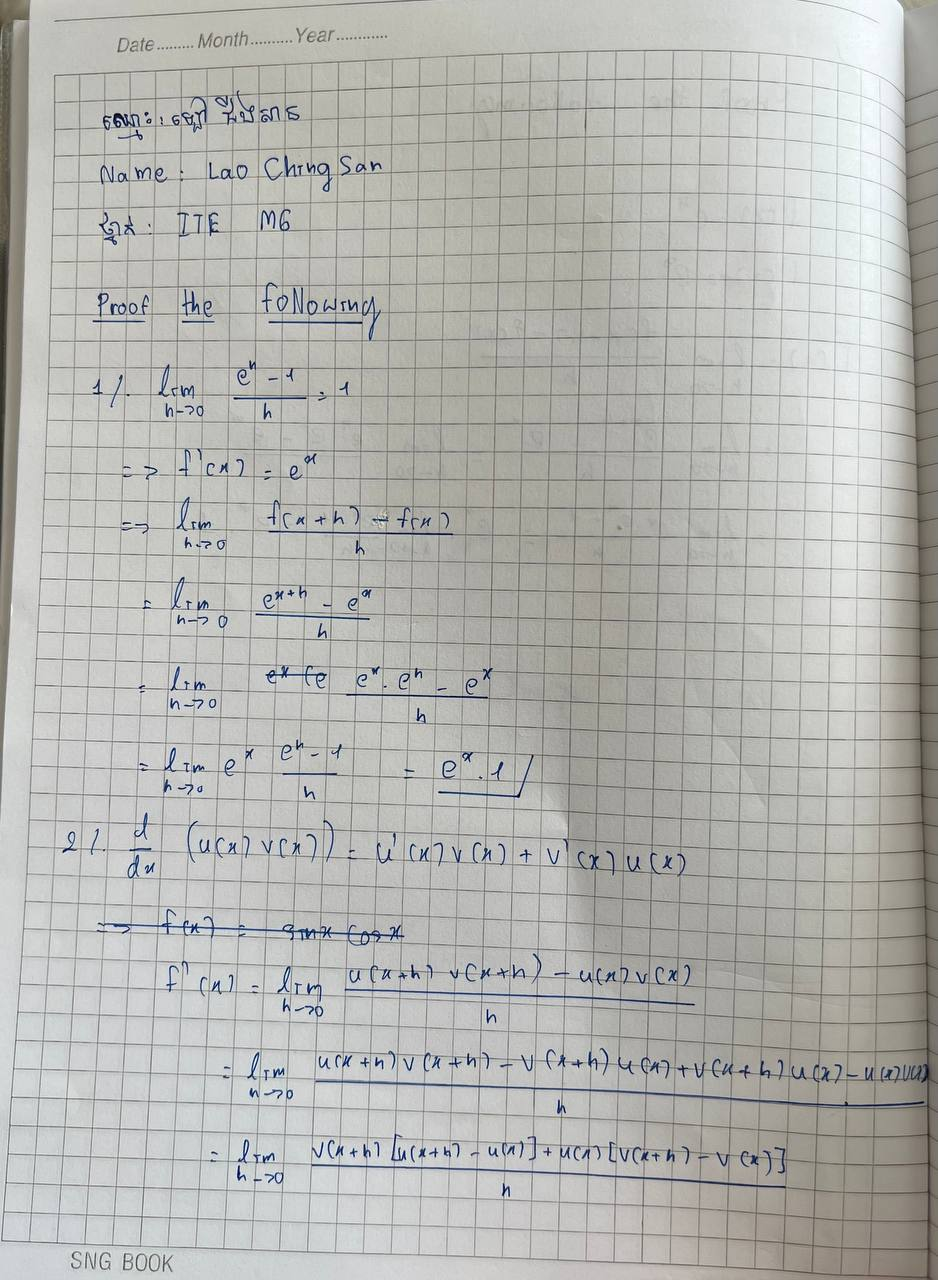 Date ......... Month .......... Year ............
ឈ្មោះ: ឡៅ ជីងសាន
Name : Lao Ching San
ថ្នាក់ : ITE M6
Proof the following
1/. lim h->0 (e^h - 1)/h = 1
=> f'(x) = e^x
=> lim h->0 (f(x+h) - f(x))/h
= lim h->0 (e^(x+h) - e^x)/h
= lim h->0 e^x (e (e^x . e^h - e^x)/h
= lim h->0 e^x (e^h - 1)/h = e^x . 1
2/. d/dx (u(x) v(x)) = u'(x) v(x) + v'(x) u(x)
=> f(x) = sinx cosx
f'(x) = lim h->0 (u(x+h) v(x+h) - u(x) v(x))/h
= lim h->0 (u(x+h) v(x+h) - v(x+h) u(x) + v(x+h) u(x) - u(x) v(x))/h
= lim h->0 (v(x+h) [u(x+h) - u(x)] + u(x) [v(x+h) - v(x)])/h
SNG BOOK